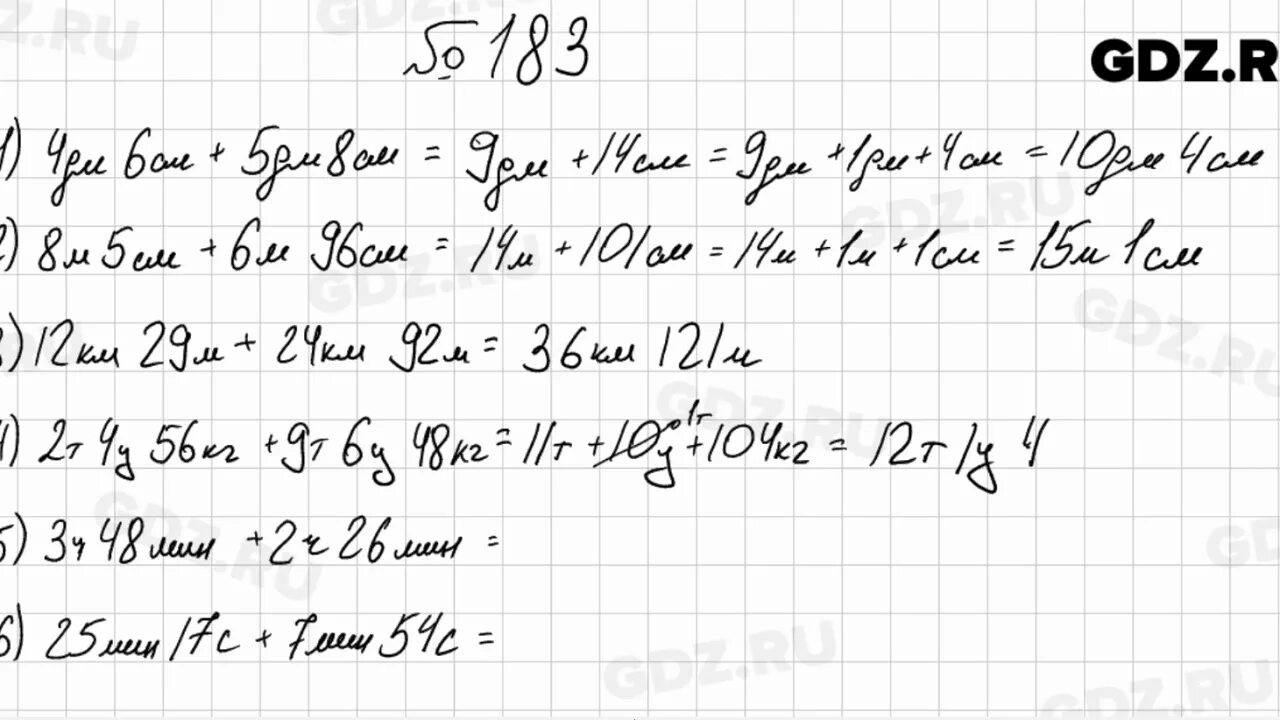 № 183
GDZ.R
1) 4дм 6см + 5дм 8см = 9дм + 14см = 9дм + 1дм + 4см = 10дм 4см
2) 8м 5см + 6м 96см = 14м + 101см = 14м + 1м + 1см = 15м 1см
3) 12км 29м + 24км 92м = 36км 121м
4) 2т 4ц 56кг + 9т 6ц 48кг = 11т + 10ц 1т + 104кг = 12т 1ц 4
5) 3ч 48мин + 2ч 26мин =
6) 25мин 17с + 7мин 54с =